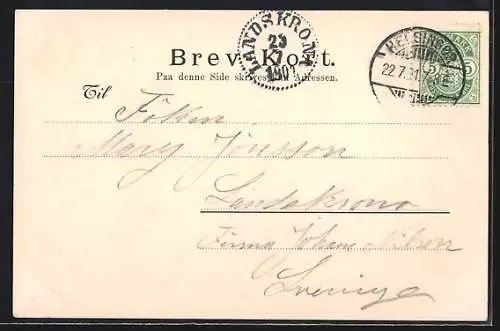 Brev-Kort.
Paa denne Side skrives kun Adressen.
LANDSKRONA
23
7
1901
HELSINGØR
22.7.
5 5
Til Fröken
Mary Jönsson
Landskrona
Firma Johan Nilson
Sverige